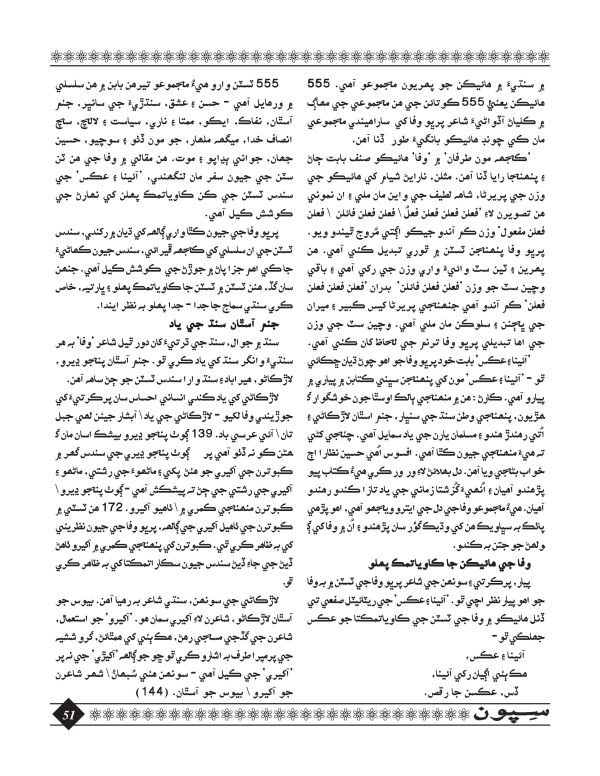 ۾ سنڌيءَ ۾ هائيڪن جو پھريون ماڄموعو آهي. 555
هائيڪن يعنيٰ 555 ڪوتائن جي هن ماڄموعي جي مھاڳ
۾ ڪلياڻ آڏواڻيءَ شاعر پريو وفا کي ساراهيندي ماڄموعي
مان ڪي چونڊ هائيڪو بانگيءَ طور ڏنا آهن.
”ڪاڄهہ مون طرفان“ ۾ ”وفا“ هائيڪو صنف بابت ڄاڻ
۽ پنھنڄا رايا ڏنا آهن. مثلن، ناراڻ شيام کي هائيڪو جي
وزن جي پريرڻا، شاهہ لطيف جي واين مان ملي ۽ ان نموني
هن تصويرن لاءِ ”فعلن فعلن فعلن فعلُ \ فعلن فعلن فائلن \ فعلن
فعلن مفعول“ وزن ڪم آندو جيڪو اڳتي مُروج ٿيندو ويو.
پريو وفا پنھنڄن ٽسٽن ۾ ٿوري تبديل ڪئي آهي. هن
پھرين ۽ ٽين سٽ وائيءَ واري وزن جي رکي آهي ۽ باقي
وچين سٽ جو وزن ”فعلن فعلن فائلن“ بدران ”فعلن فعلن فعلن
فعلن“ ڪم آندو آهي جنھنڄاي پريرڻا کيس ڪبير ۽ ميران
جي ڀاڄنن ۽ سلوڪن مان ملي آهي. وچين سٽ جي وزن
جي اها تبديلي پريو وفا ترنم جي لحاظ کان ڪئي آهي.
”آئينا ۽ عڪس“ بابت خود پريو وفا جو اهو چوڻ ڌيان ڇڪائي
ٿو - ”آئينا ۽ عڪس“ مون کي پنھنڄن سڀني ڪتابن ۾ پياري ۾
پيارو آهي. ڪارڻ: هن ۾ منھنڄاي ٻالڪا اوسٿا جون خوشگوار گ
هڙيون، پنھنڄاي وطن سنڌ جي سنڀار، جنم آستان لاڙڪاڻي ۽
اُتي رهندڙ هندو ۽ مسلمان يارن جي ياد سمايل آهي. چئاجي کڻي
تہ هيءَ منھنڄاي جيون ڪٿا آهي. افسوس اُهي حسين نظارا اڄ
خواب بڻاجي ويا آهن. دل بھلائڻ لاءِ ور ور ڪري هيءُ ڪتاب پيو
پڙهندو آهيان ۽ اُنھيءَ گُزشتا زماني جي ياد تازا ڪندو رهندو
آهيان. هيءُ ماڄموعو وفا جي دل جي ايترو ويڄھو آهي، اهو پڙهي
پاٺڪ بہ سڀاويڪ هن کي وڌيڪ گور سان پڙهندو ۽ اُن ۾ وفا کي ڳ
ولھڻ جو جتن بہ ڪندو.
وفا جي هائيڪن جا ڪاوياتمڪ پھلو
پيار، پرڪرتي ۽ سونھن جي شاعر پريو وفا جي ٽسٽن ۾ بہ وفا
جو اهو پيار نظر اچي ٿو. ”آئينا ۽ عڪس“ جي ريٽائيٽل صفحي تي
ڏنل هائيڪو ۾ وفا جي ٽسٽن جي ڪاوياتمڪتا جو عڪس
جھلڪي ٿو -
آئينا ۽ عڪس،
مڪ ٻني اڳيان رکي آئينا،
ڏس، عڪسن جا رقص.
555 ٽسٽن وارو هيءُ ماڄموعو تيرهن بابن ۾ هن سلسلي
۾ ورهايل آهي - حسن ۽ عشق، سنتڙيءَ جي سانڀر، جنم
آستان، نفاڪ، ايڪو، ممتا ۽ ناري، سياست ۽ لالاچ، ساچ
انصاف خدا، ميگھہ ملھار، جو مون ڏٺو ۽ سوچيو، حسين
جھان، جواني ٻڍاپو ۽ موت. هن مقالي ۾ وفا جي هن ٽن
سٽن جي جيون سفر مان لنگھندي، ”آئينا ۽ عڪس“ جي
سندس ٽسٽن جي ڪن ڪاوياتمڪ پھلن کي نھارڻ جي
ڪوشش ڪيل آهي.
پريو وفا جي جيون ڪٿا واري ڳالھہ کي ڌيان ۾ رکندي، سندس
ٽسٽن جي ان سلسلي کي ڪاڄهہ ڦيرائي، سندس جيون ڪھاڻيءَ
جا ڪي اهم جزا پاڻ ۾ جوڙڻ جي ڪوشش ڪيل آهي. جنھن
سان گڏ، هنن ٽسٽن جا ڪاوياتمڪ پھلو ۽ ڀارتيہ، خاص
ڪري سنڌي سماج جا جدا - جدا پھلو بہ نظر ايندا.
جنم آستان سنڌ جي ياد
سنڌ ۾ جوال، سنڌ جي ڌرتيءَ کان دور ٿيل شاعر ”وفا“ بہ هر
سنڌيءَ وانگر سنڌ کي ياد ڪري ٿو. جنم آستان پنھنڄو ديرو،
لاڙڪاڻو، هيرا باد ۽ سنڌ وارا سندس ٽسٽن جو ڄڻ ساهہ آهن.
لاڙڪاڻي کي ياد ڪندي انساني احساسن سان پرڪرتيءَ کي
جوڙيندي وفا لکيو - لاڙڪاڻي جي ياد\ آبشار جيئن لھي جبل
تان\ آئي عرسي باد. 139 ڳوٺ پنھنڄو ديرو بيشڪ اسان مان گ
هڻن ڪو نہ ڏٺو آهي پر ڳوٺ پنھنڄو ديرو جي سندس گھر ۾
ڪبوترن جي آکيري جو هئڻ پکي ۽ ماڻھوءَ جي رشتي، ماڻھو ۽
آکيري جي رشتي جي ڄڻ تہ پيشڪش آهي - ڳوٺ پنھنڄو ديرو\
ڪبوترن منھنڄاي ڪمري ۾\ ٺاهيو آکيرو. 172 هن ٽسٽي ۾
ڪبوترن جي ٺاهيل آکيري جي ڳالھہ، پريو وفا جي جيون نظرئي
کي بہ ظاهر ڪري ٿي. ڪبوترن کي پنھنڄاي ڪمري ۾ آکيرو ٺاهڻ
ڏيڻ جي جاءِ ڏيڻ سندس جيون سڪاراتمڪتا کي بہ ظاهر ڪري
ٿو.
لاڙڪاڻي جي سونھن، سنڌي شاعر بہ رهيا آهن. بيوس جو
آستان لاڙڪاڻو، شاعرن لاءِ آکيري سمان هو. ”آکيرو“ جو استعمال،
شاعرن جي گڏجي مساجي رهڻ، هڪ ٻئي کي همٿائڻ، گرو ششيہ
جي پرمپرا طرف بہ اشارو ڪري ٿو ڇو جو ڳالھہ ”آکيڙي“ جي نہ پر
”آکيري“ جي ڪيل آهي - سونھن مٺي سُبھاڻ\ شھر شاعرن
جو آکيرو\ بيوس جو آستان. (144)
سِپون
51